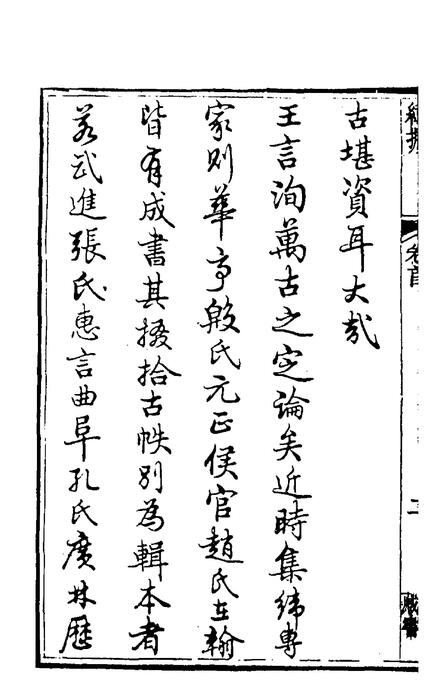 古堪資耳大哉
王言洵萬古之定論矣近時集緯專
家則華亭殷氏元正侯官趙氏在翰
皆有成書其掇拾古帙別為輯本者
若武進張氏惠言曲阜孔氏廣林歷
卷首
二